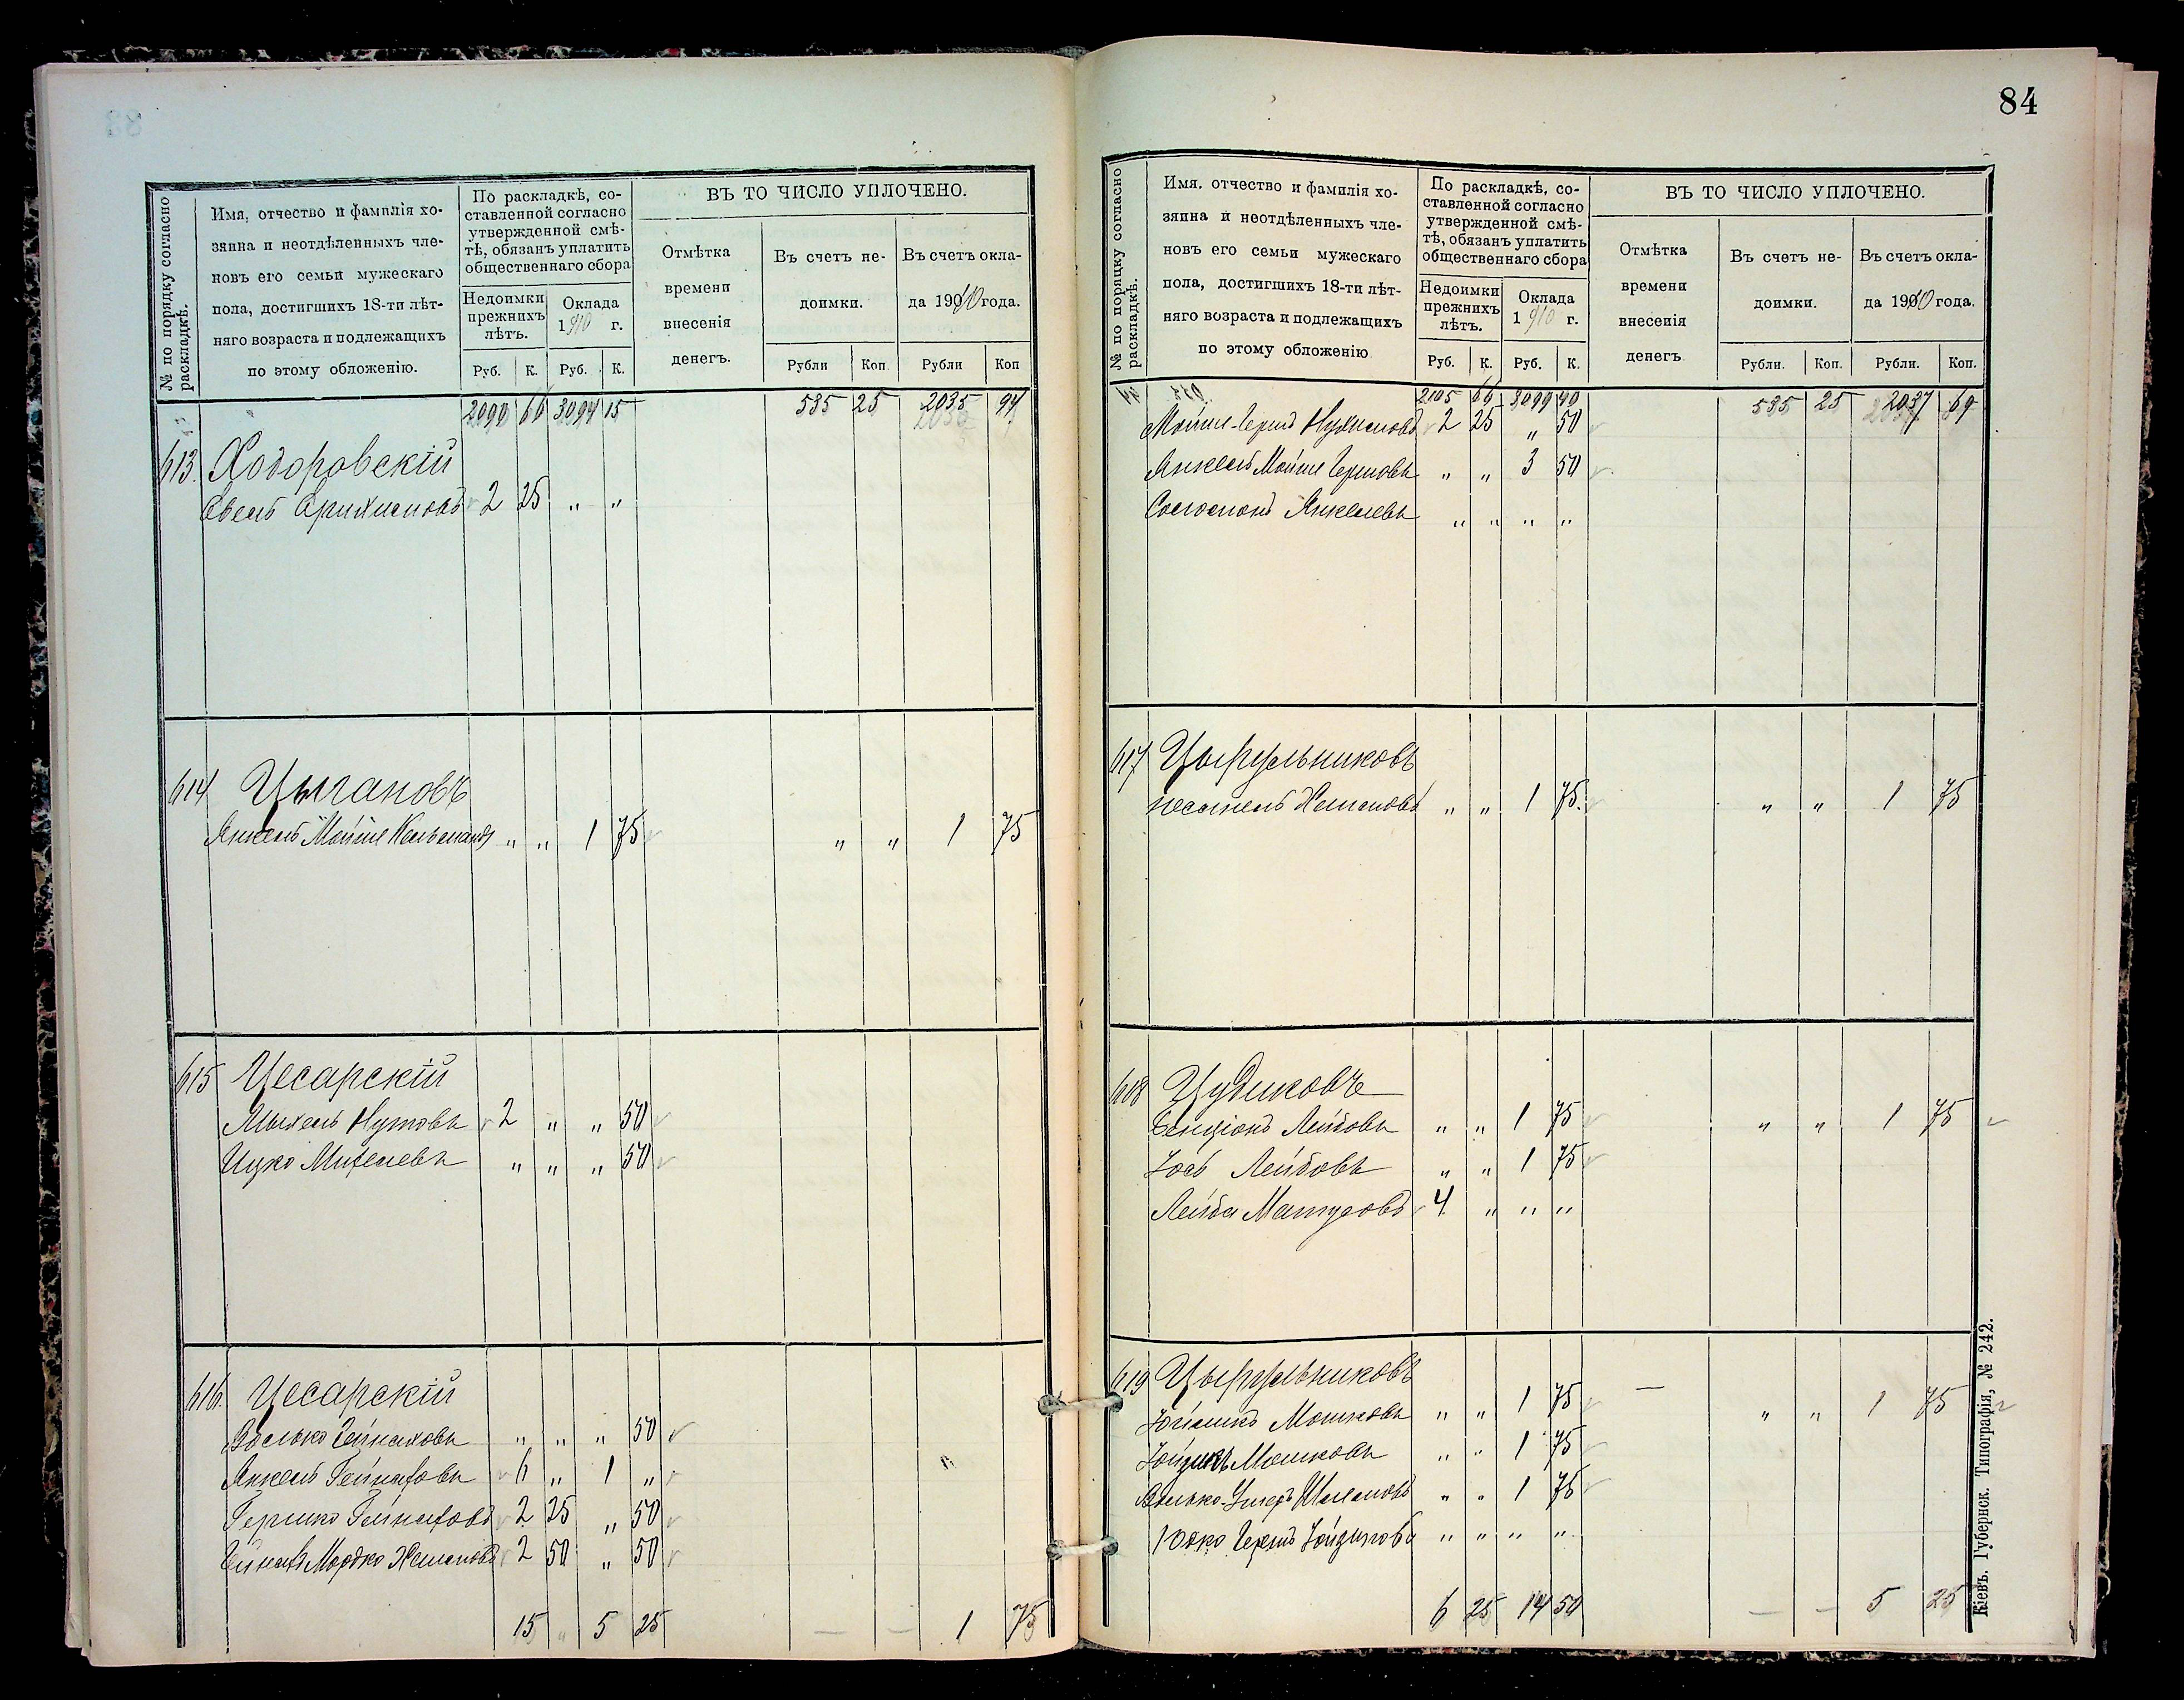 № по порядку согласно раскладкѣ.
Имя, отчество и фамилія хо-
зяина и неотдѣленныхъ чле-
новъ его семьи мужескаго
пола, достигшихъ 18-ти лѣт-
няго возраста и подлежащихъ
по этому обложенію.
По раскладкѣ, со-
ставленной согласно
утвержденной смѣ-
тѣ, обязанъ уплатить
общественнаго сбора
Недоимки
прежнихъ
лѣтъ.
Оклада
1910 г.
Руб. К. Руб. К.
ВЪ ТО ЧИСЛО УПЛОЧЕНО.
Отмѣтка
времени
внесенія
денегъ.
Въ счетъ не-
доимки.
Въ счетъ окла-
да 1910 года.
Рубли Коп. Рубли Коп
2090 66 3094 15 535 25 2035 94
613. Ходоровскій
2 25 " "
614 Цыгановъ
Янкель Мойше " " 1 75 " " 1 75
615 Цесарскій
Мыхель Нутовъ 2 " " 50
Ицко Михелевъ " " " 50
616. Цесарскій
Волько Гейнаховъ " " " 50
Янкель Гейнаховъ 6 " 1 "
Гершко Гейнаховъ 2 25 " 50
Гейнахъ Мордко 2 50 " 50
15 " 5 25 — — 1 75
84
№ по порядку согласно раскладкѣ.
Имя, отчество и фамилія хо-
зяина и неотдѣленныхъ чле-
новъ его семьи мужескаго
пола, достигшихъ 18-ти лѣт-
няго возраста и подлежащихъ
по этому обложенію
По раскладкѣ, со-
ставленной согласно
утвержденной смѣ-
тѣ, обязанъ уплатить
общественнаго сбора
Недоимки
прежнихъ
лѣтъ.
Оклада
1910 г.
Руб. К. Руб. К.
ВЪ ТО ЧИСЛО УПЛОЧЕНО.
Отмѣтка
времени
внесенія
денегъ
Въ счетъ не-
доимки.
Въ счетъ окла-
да 1910 года.
Рубли. Коп. Рубли. Коп.
2105 66 3099 40 535 25 2037 69
Мойше-Гершъ 2 25 " 50
Янкель Мойше Гершовъ " " 3 50
Соломонъ Янкелевъ " " " "
617 Цырульниковъ
" " 1 75. " " 1 75
618 Цудиковъ
Бенціонъ Лейбовъ " " 1 75 " " 1 75
Іось Лейбовъ " " 1 75
Лейба Матусовъ 4 " " "
619 Цырульниковъ
Мошковъ " " 1 75 — " " 1 75
Мошковъ " " 1 75
" " 1 75
Гершъ " " " "
6 25 14 50 — — 5 25
Кіевъ. Губернск. Типографія, № 242.